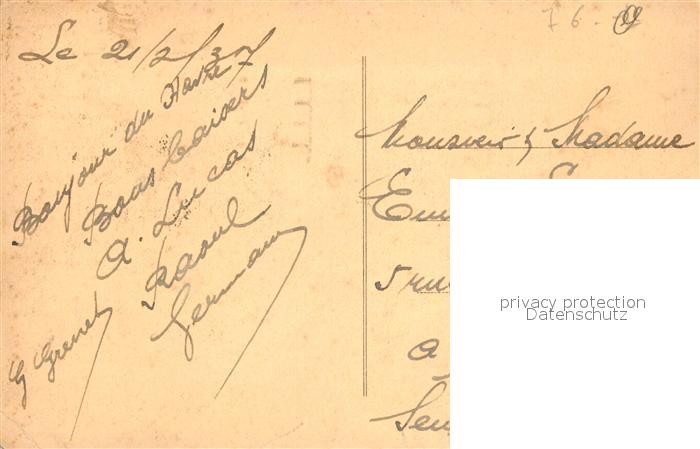 76 -
Le 21/2/37
Bonjour du Havre
Bons baisers
A. Lucas
Raoul
Germain
G Grenet
Monsieur & Madame
5 rue
a
privacy protection
Datenschutz